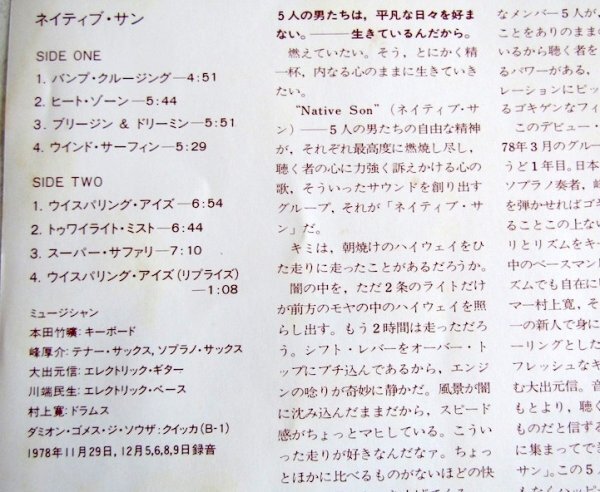 ネイティブ・サン
SIDE ONE
1. バンプ・クルージング—4:51
2. ヒート・ゾーン—5:44
3. ブリージン & ドリーミン—5:51
4. ウインド・サーフィン—5:29
SIDE TWO
1. ウイスパリング・アイズ—6:54
2. トゥワイライト・ミスト—6:44
3. スーパー・サファリ—7:10
4. ウイスパリング・アイズ(リプライズ)
—1:08
ミュージシャン
本田竹曠: キーボード
峰厚介: テナー・サックス, ソプラノ・サックス
大出元信: エレクトリック・ギター
川端民生: エレクトリック・ベース
村上寛: ドラムス
ダミオン・ゴメス・ジ・ソウザ: クイッカ(B-1)
1978年11月29日, 12月5,6,8,9日録音
5人の男たちは, 平凡な日々を好ま
ない。——生きているんだから。
燃えていたい。そう, とにかく精
一杯, 内なる心のままに生きていき
たい。
“Native Son”(ネイティブ・サ
ン)——5人の男たちの自由な精神
が, それぞれ最高度に燃焼し尽し,
聴く者の心に力強く訴えかける心の
歌, そういったサウンドを創り出す
グループ, それが「ネイティブ・サ
ン」だ。
キミは, 朝焼けのハイウェイをひ
た走りに走ったことがあるだろうか。
闇の中を, ただ2条のライトだけ
が前方のモヤの中のハイウェイを照
らし出す。もう2時間は走っただろ
う。シフト・レバーをオーバー・ト
ップにブチ込んであるから, エンジ
ンの唸りが奇妙に静かだ。風景が闇
に沈み込んだままだから, スピード
感がちょっとマヒしている。こうい
った走りが好きなんだなァ。ちょっ
とほかに比べるものがないほどの快
なメンバー5人が,
ことをありのままの
いるから聴く者を
るパワーがある,
レーションにピッ
るゴキゲンなフィ
このデビュー・
78年3月のグルー
うど1年目。日本
ソプラノ奏者, 峰
を弾かせればゴキ
ることこの上ない
リとリズムをキー
中のベースマン
ズムでも自在に
マー村上寛, そ
一の新人で身に
ーリングとした
フレッシュなギ
む大出元信。音
もとより, 聴く
ものだと信ずる
に集まってでき
サン」。この5人